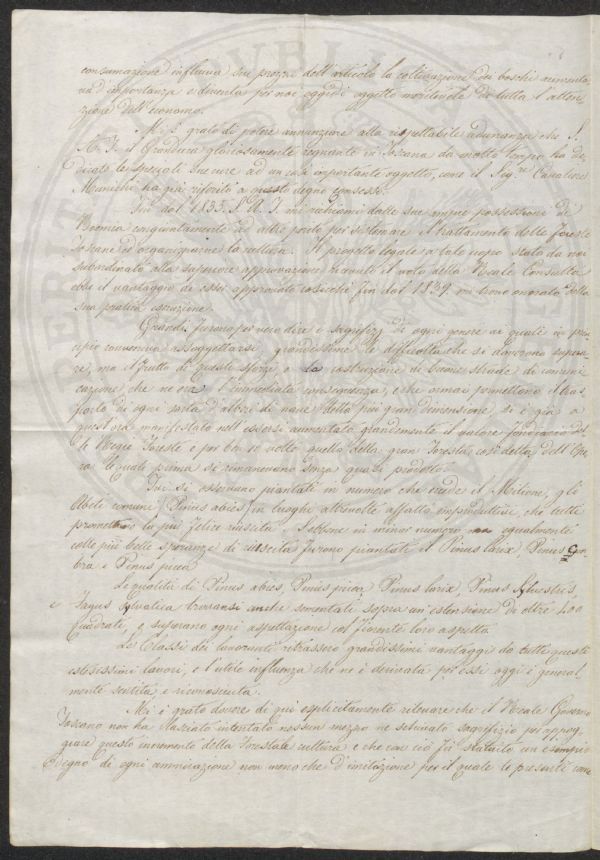 consumazione influiva sui prezzi dell'articolo la coltivazione dei boschi aumenta
va d'importanza e diventa per noi oggidì oggetto meritevole di tutta l'atten,
zione dell'economo.
Mi è grato di potere annunziare alla rispettabile adunanza che S.
A. I. il Granduca gloriosamente regnante in Toscana da molto tempo ha de,
dicato le speciali sue cure ad un così importante oggetto, come il Sig.re Cavaliere
ha già riferito a questo degno consesso.
Fin dal 1835 S. A. I. mi richiamò dalle sue possessioni di
Boemia congiuntamente ad altro perito per sistemare il trattamento delle Foreste
Toscane ed organizzarne la cultura. Il progetto legale a tale uopo stato da noi
subordinato alla superiore approvazione riscontrò il voto della Reale Consulta
ebbe il vantaggio di esser approvato cosicchè fin dal 1837 mi trovo onorato della
sua pratica esecuzione.
Grandi furono per vero dire i sagrifizj di ogni genere ai quali in prin,
cipio conveniva assoggettarsi, grandissime le difficoltà che si dovevano supera,
re, ma il frutto di questi sforzi, e la costruzione di buone strade di comuni
cazione che ne era l'immediata conseguenza, e che ormai permettono il tras
porto di ogni sorta d'alberi di nave della più gran dimensione, si è già a
quest'ora manifestato nell'essersi aumentato grandemente il valore fondiario del
le Regie Foreste e per ben 10 volte quello della gran Foresta così detta dell'Ope
ra la quale prima si rimanevano senza quasi prodotto.
Ivi si osservano piantati in numero che eccede il Milione, gli
Abeti comuni (Pinus abies) in luoghi altrevolte affatto improduttivi, che tutti
promettono la più felice riuscita. Sebbene in minor numero ma egualmente
colle più belle speranze di riuscita furono piantati il Pinus larix, Pinus Cem
bra e Pinus picea
Le qualità di Pinus abies, Pinus picea, Pinus larix, Pinus Sylvestris,
e Fagus Sylvatica trovansi anche sementate sopra un'estensione di oltre 400
Quadrati, e superano ogni aspettazione col fiorente loro aspetto.
Le Classi dei lavoranti ritrassero grandissimi vantaggi da tutti questi
estesissimi lavori, e l'utile influenza che ne è derivata per essi oggi è general
mente sentita, e riconosciuta.
Mi è grato dovere di qui esplicitamente rilevare che il Reale Governo
Toscano non ha lasciato intentato nessun mezzo ne schivato sagrifizio per appog,
giare questo incremento della Forestale cultura e che con ciò fu statuito un esempio
degno di ogni ammirazione non meno che d'imitazione per il quale le presenti come